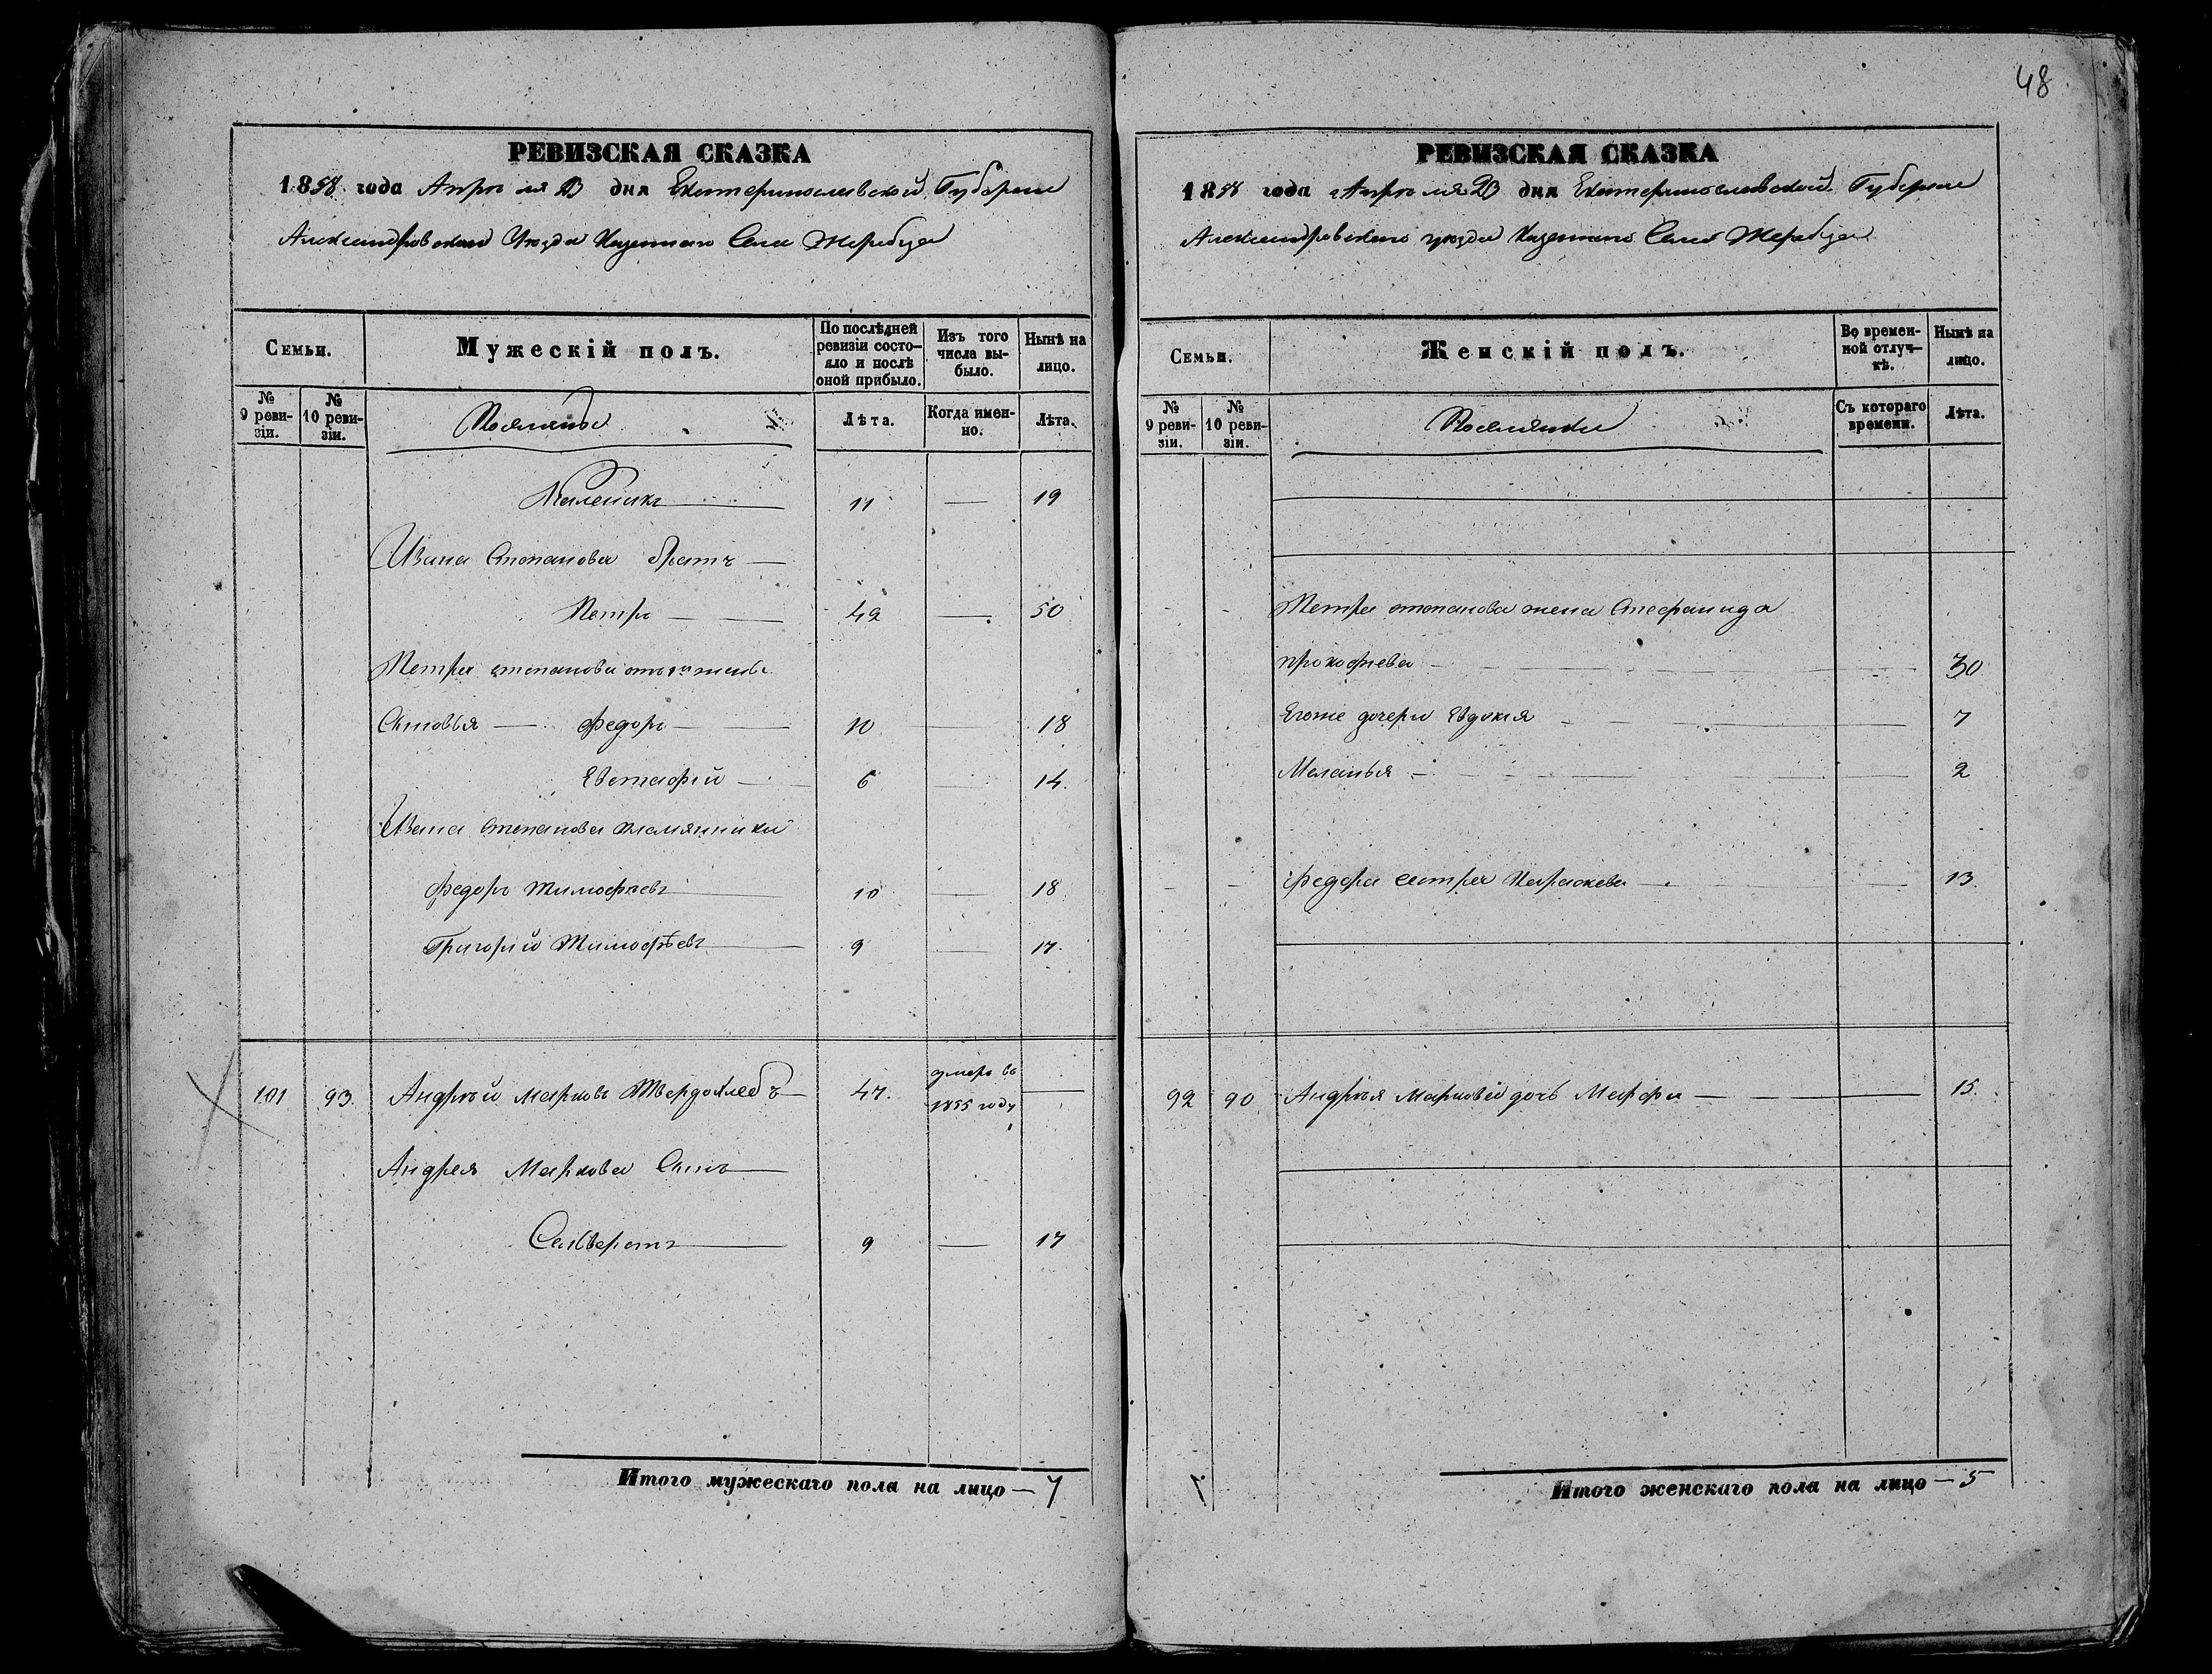 48
РЕВИЗСКАЯ СКАЗКА
1858 года Апреля 23 дня Екатеринославской Губернии
Александровскаго Уѣзда Казеннаго Села Жеребца
Семьи.
Мужескій полъ.
По послѣдней ревизіи состояло и послѣ оной прибыло.
Изъ того числа выбыло.
Нынѣ на лицо.
№ 9 ревизіи.
№ 10 ревизіи.
Поселяне
Лѣта.
Когда именно.
Лѣта.
11 — 19
Ивана Степанова братъ —
Петръ — 42 — 50
Петра степанова отъ 1й жены
Сыновья — Федоръ — 10 — 18
Евстафій — 6 — 14.
Ивана Степанова племянники
Федоръ Тимофѣевъ 10 — 18
Григорій Тимофѣевъ 9 — 17.
101 93. Андрѣй Марковъ Твердохлебъ 47. умеръ въ 1855 году —
Андрея Маркова Сынъ
Селиверстъ 9 — 17
Итого мужескаго пола на лицо — 7
РЕВИЗСКАЯ СКАЗКА
1858 года Апреля 23 дня Екатеринославской Губернии
Александровскаго уѣзда Казеннаго Села Жеребца
Семьи.
Женскій полъ.
Во временной отлучкѣ.
Нынѣ на лицо.
№ 9 ревизіи.
№ 10 ревизіи.
Поселянки
Съ котораго времени.
Лѣта.
Петра степанова жена Стефанида
прокофиева — 30
Егоже дочери Евдокия — 7
Меланья — 2
Федора сестра Параскева — 13.
92 90 Андрѣя Маркова дочь Марфа — 15.
Итого женскаго пола на лицо — 5